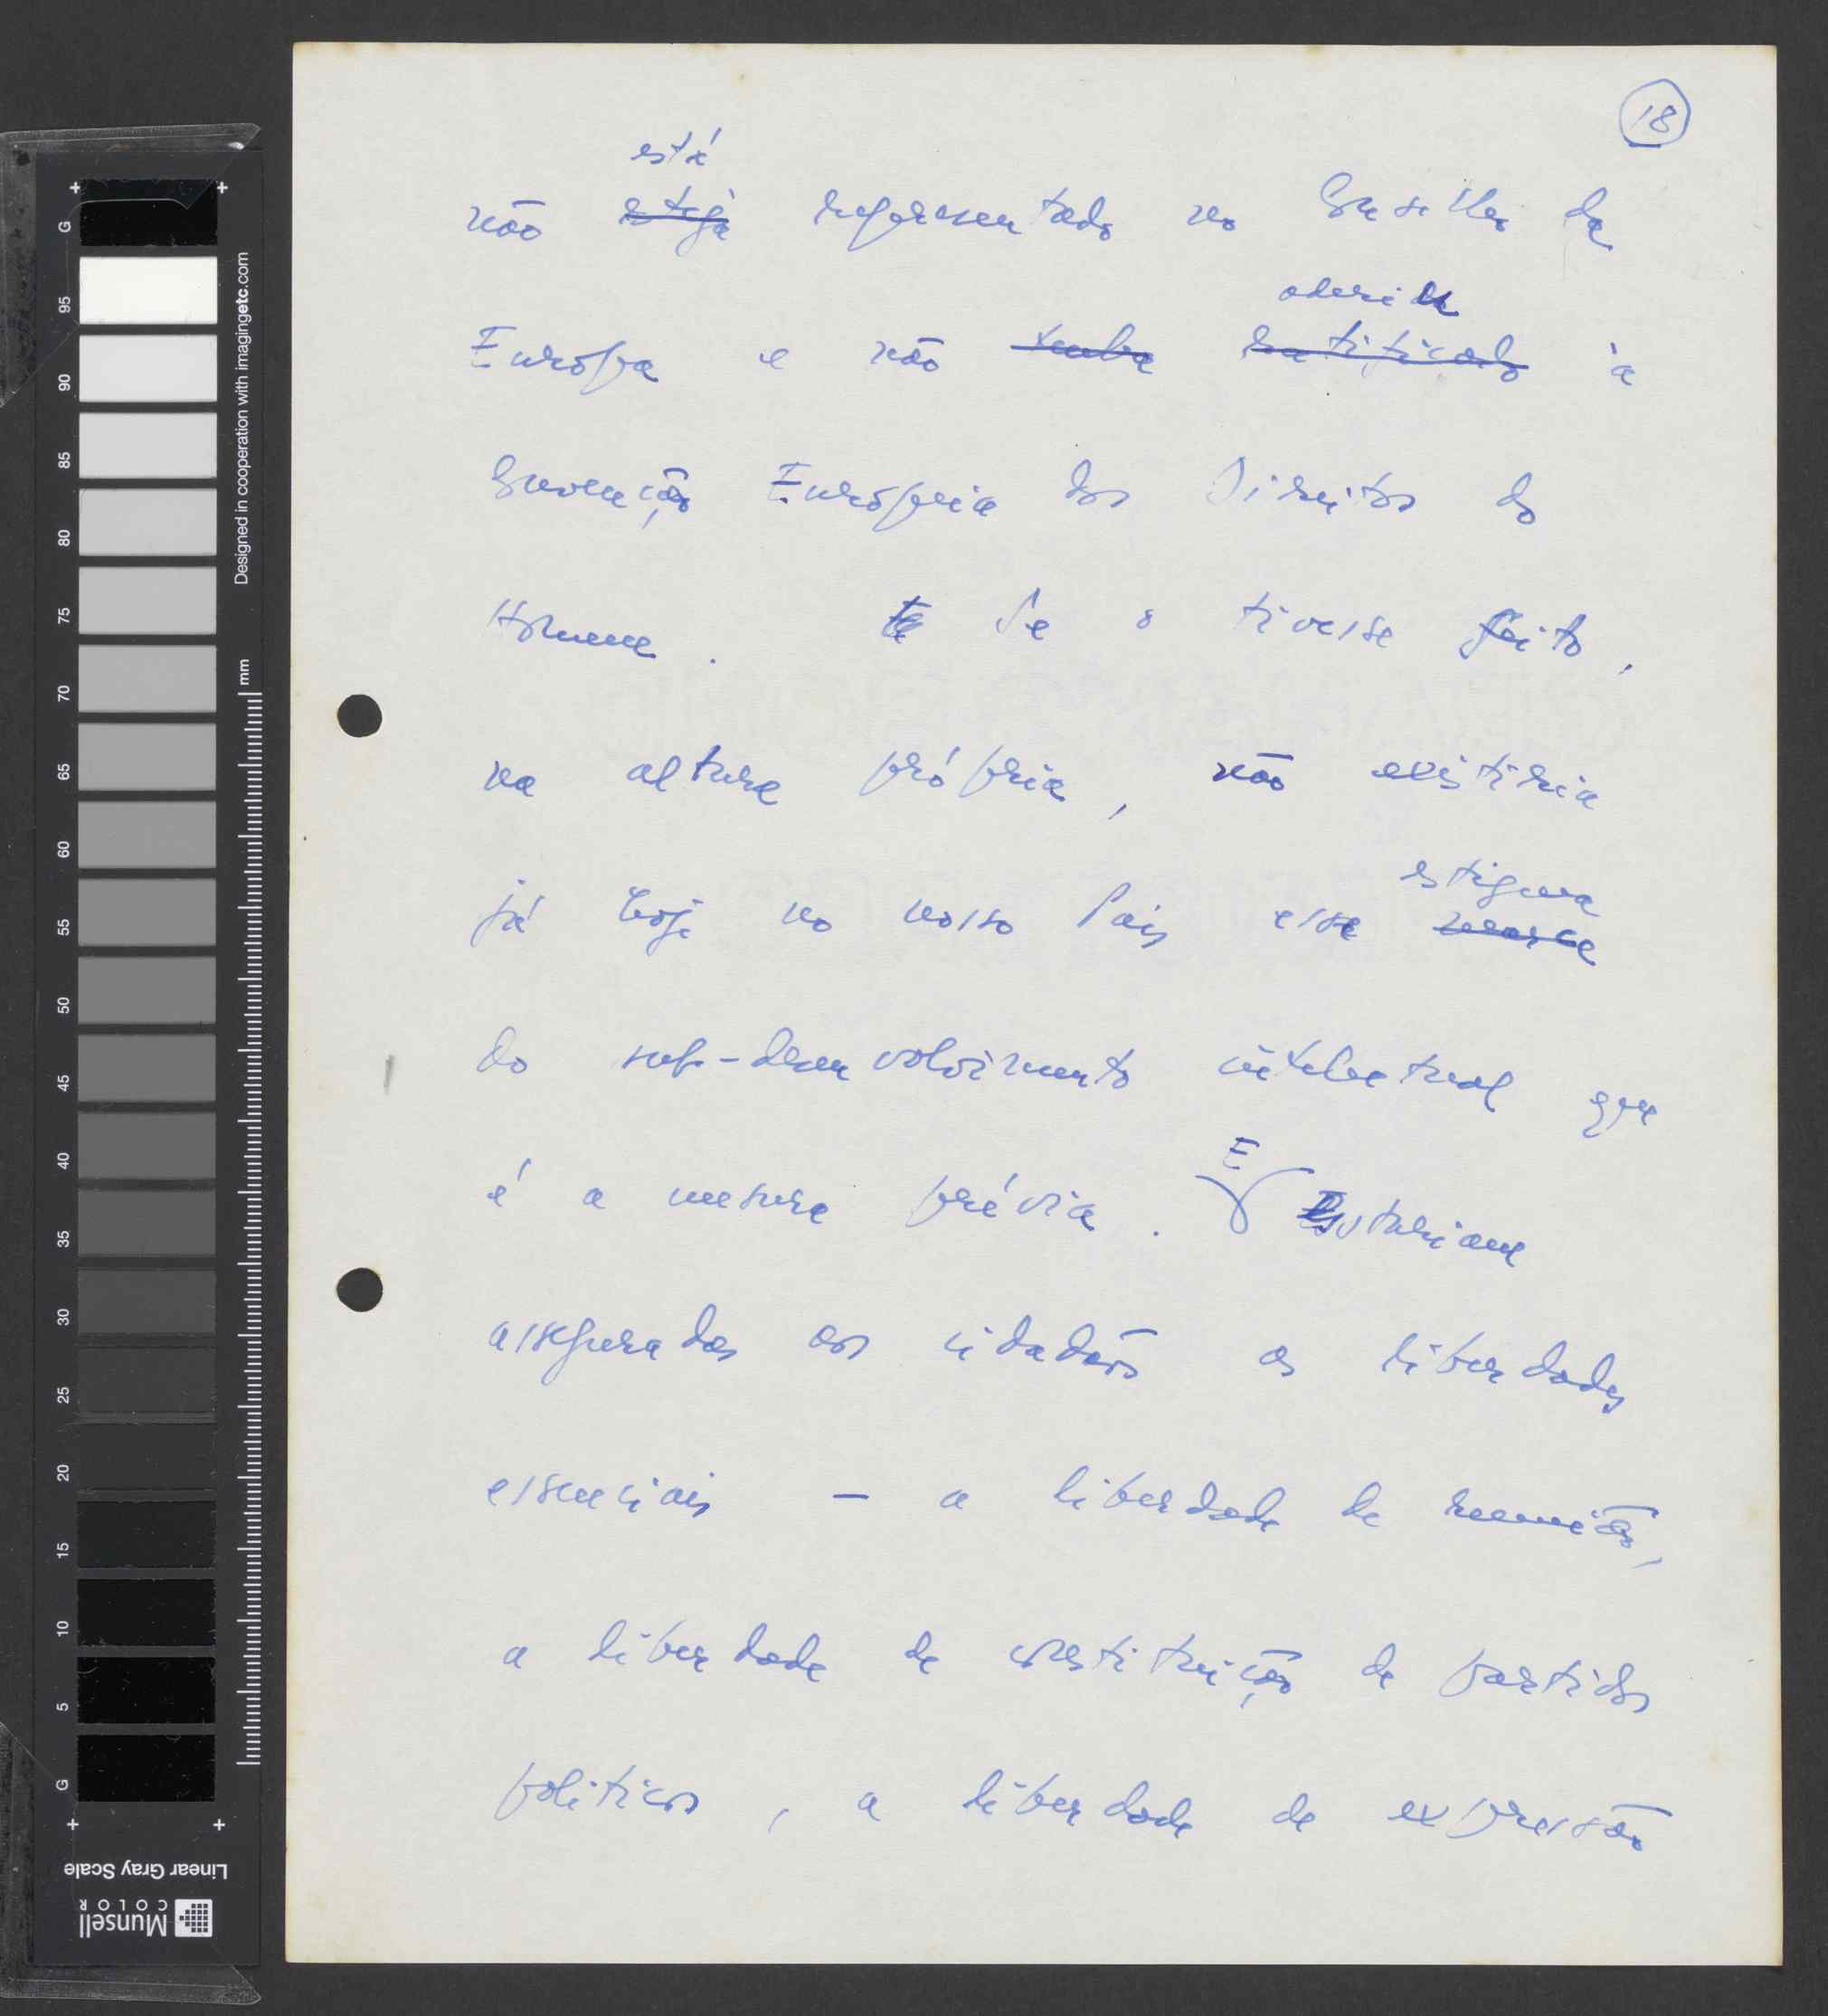 18
está
não esteja representado no Conselho da
aderiu
Europa e não tenha ratificado à
Convenção Européia dos Direitos do
Homem. Se o tivesse feito,
na altura própria, não existiria
estigma
já hoje no nosso País esse marca
do sub-desenvolvimento intelectual que
é a censura prévia. E
Estariam
assegurados aos cidadãos as liberdades
essenciais – a liberdade de reunião,
a liberdade de constituição de partidos
politicos, a liberdade de expressão
G 95 90 85 80 75 70 65 60 55 50 45 40 35 30 25 20 15 10 5 G
Designed in cooperation with imagingetc.com
mm
Linear Gray Scale
Munsell
COLOR